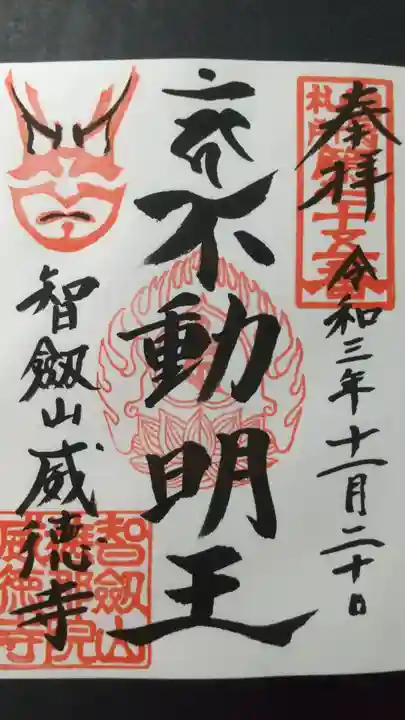 奉拝
令和三年十一月二十日
不動明王
智劔山威徳寺
智劔山
威徳寺